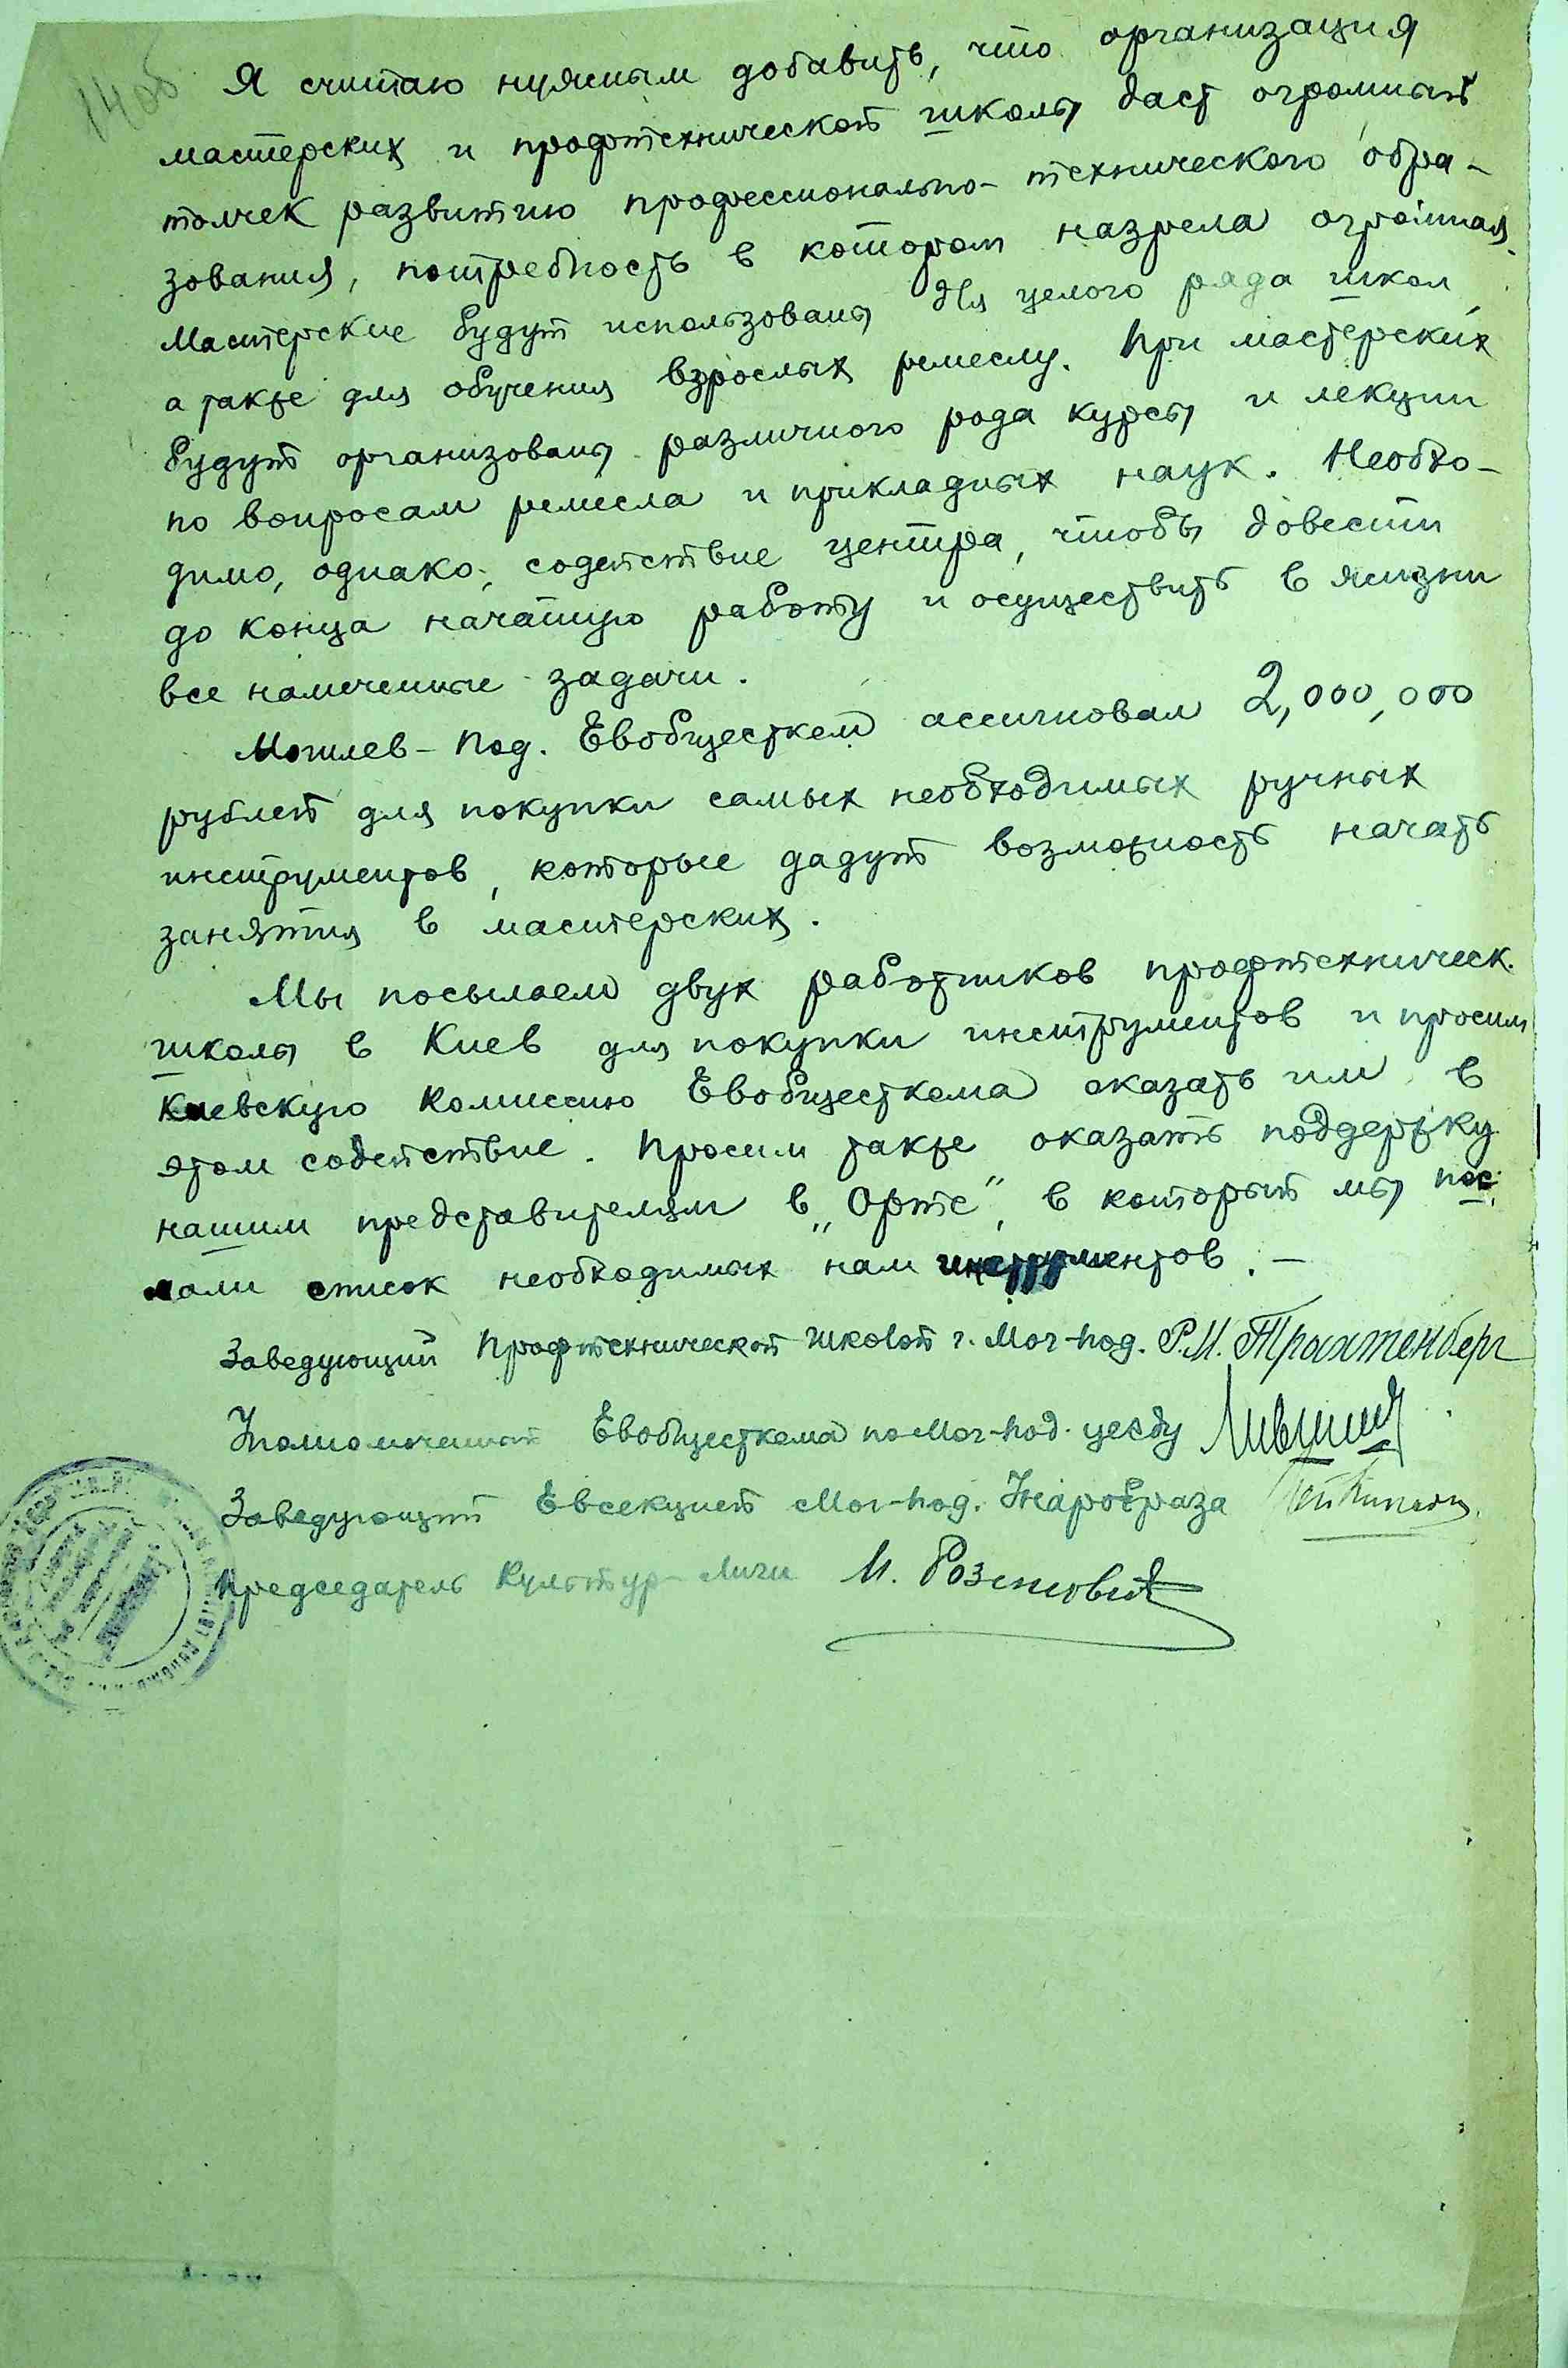 14об
Я считаю нужным добавить, что организация
мастерских и профтехнической школы даст огромный
толчек развитию профессионально-технического обра-
зования, потребность в котором назрела огромная.
Мастерские будут использованы для целого ряда школ,
а также для обучения взрослых ремеслу. При мастерских
будут организованы различного рода курсы и лекции
по вопросам ремесла и прикладных наук. Необхо-
димо, однако, содействие центра, чтобы довести
до конца начатую работу и осуществить в жизни
все намеченные задачи.
Могилев-Под. Евобщестком ассигновал 2,000,000
рублей для покупки самых необходимых ручных
инструментов, которые дадут возможность начать
занятия в мастерских.
Мы посылаем двух работников профтехническ.
школы в Киев для покупки инструментов и просим
Киевскую Комиссию Евобщесткома оказать им в
этом содействие. Просим также оказать поддержку
нашим представителям в „Орте", в который мы пос-
лали список необходимых нам инструментов. —
Заведующий Профтехнической школой г. Мог-Под. Р.М. Трахтенберг
Уполномоченный Евобщесткома по Мог-Под. уезду Лившиц
Заведующий Евсекцией Мог-Под. Наробраза
Председатель Культур-Лиги М. Розинович